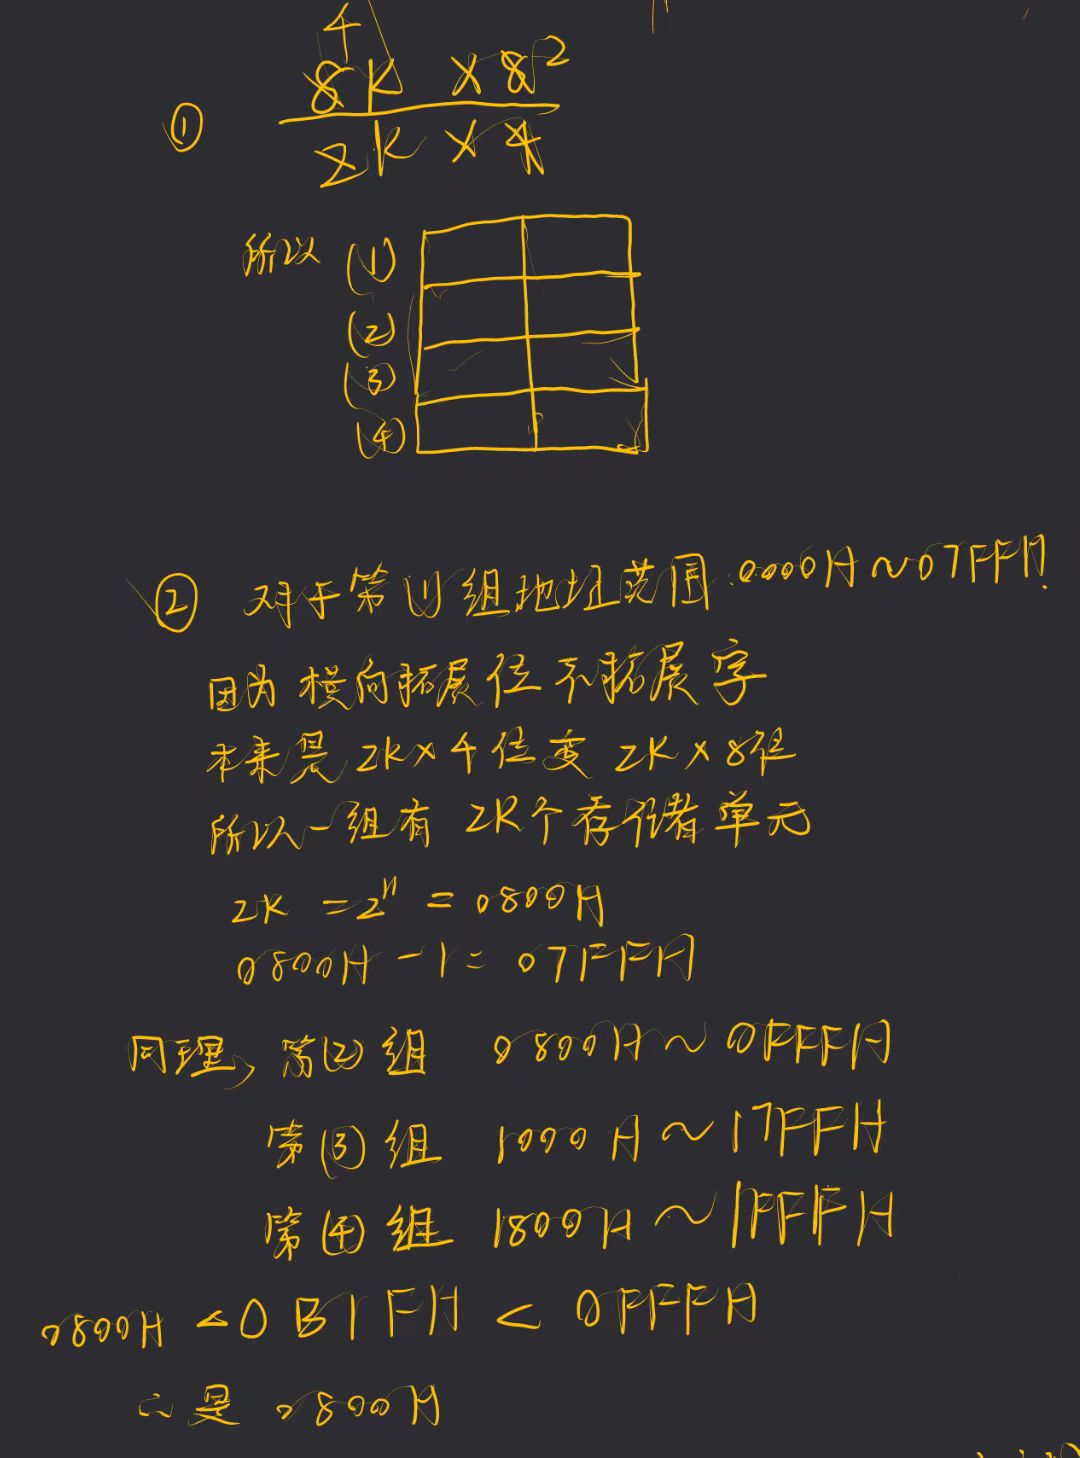 4
① 8K × 8 2
2K × 4
所以 (1)
(2)
(3)
(4)
② 对于第(1)组地址范围:0000H~07FFH
因为横向拓展位不拓展字
本来是2K×4位变2K×8位
所以一组有2K个存储单元
2K = 2^11 = 0800H
0800H - 1 = 07FFH
同理,第(2)组 0800H ~ 0FFFH
第(3)组 1000H ~ 17FFH
第(4)组 1800H ~ 1FFFH
0800H < 0B1FH < 0FFFH
∴是 0800H